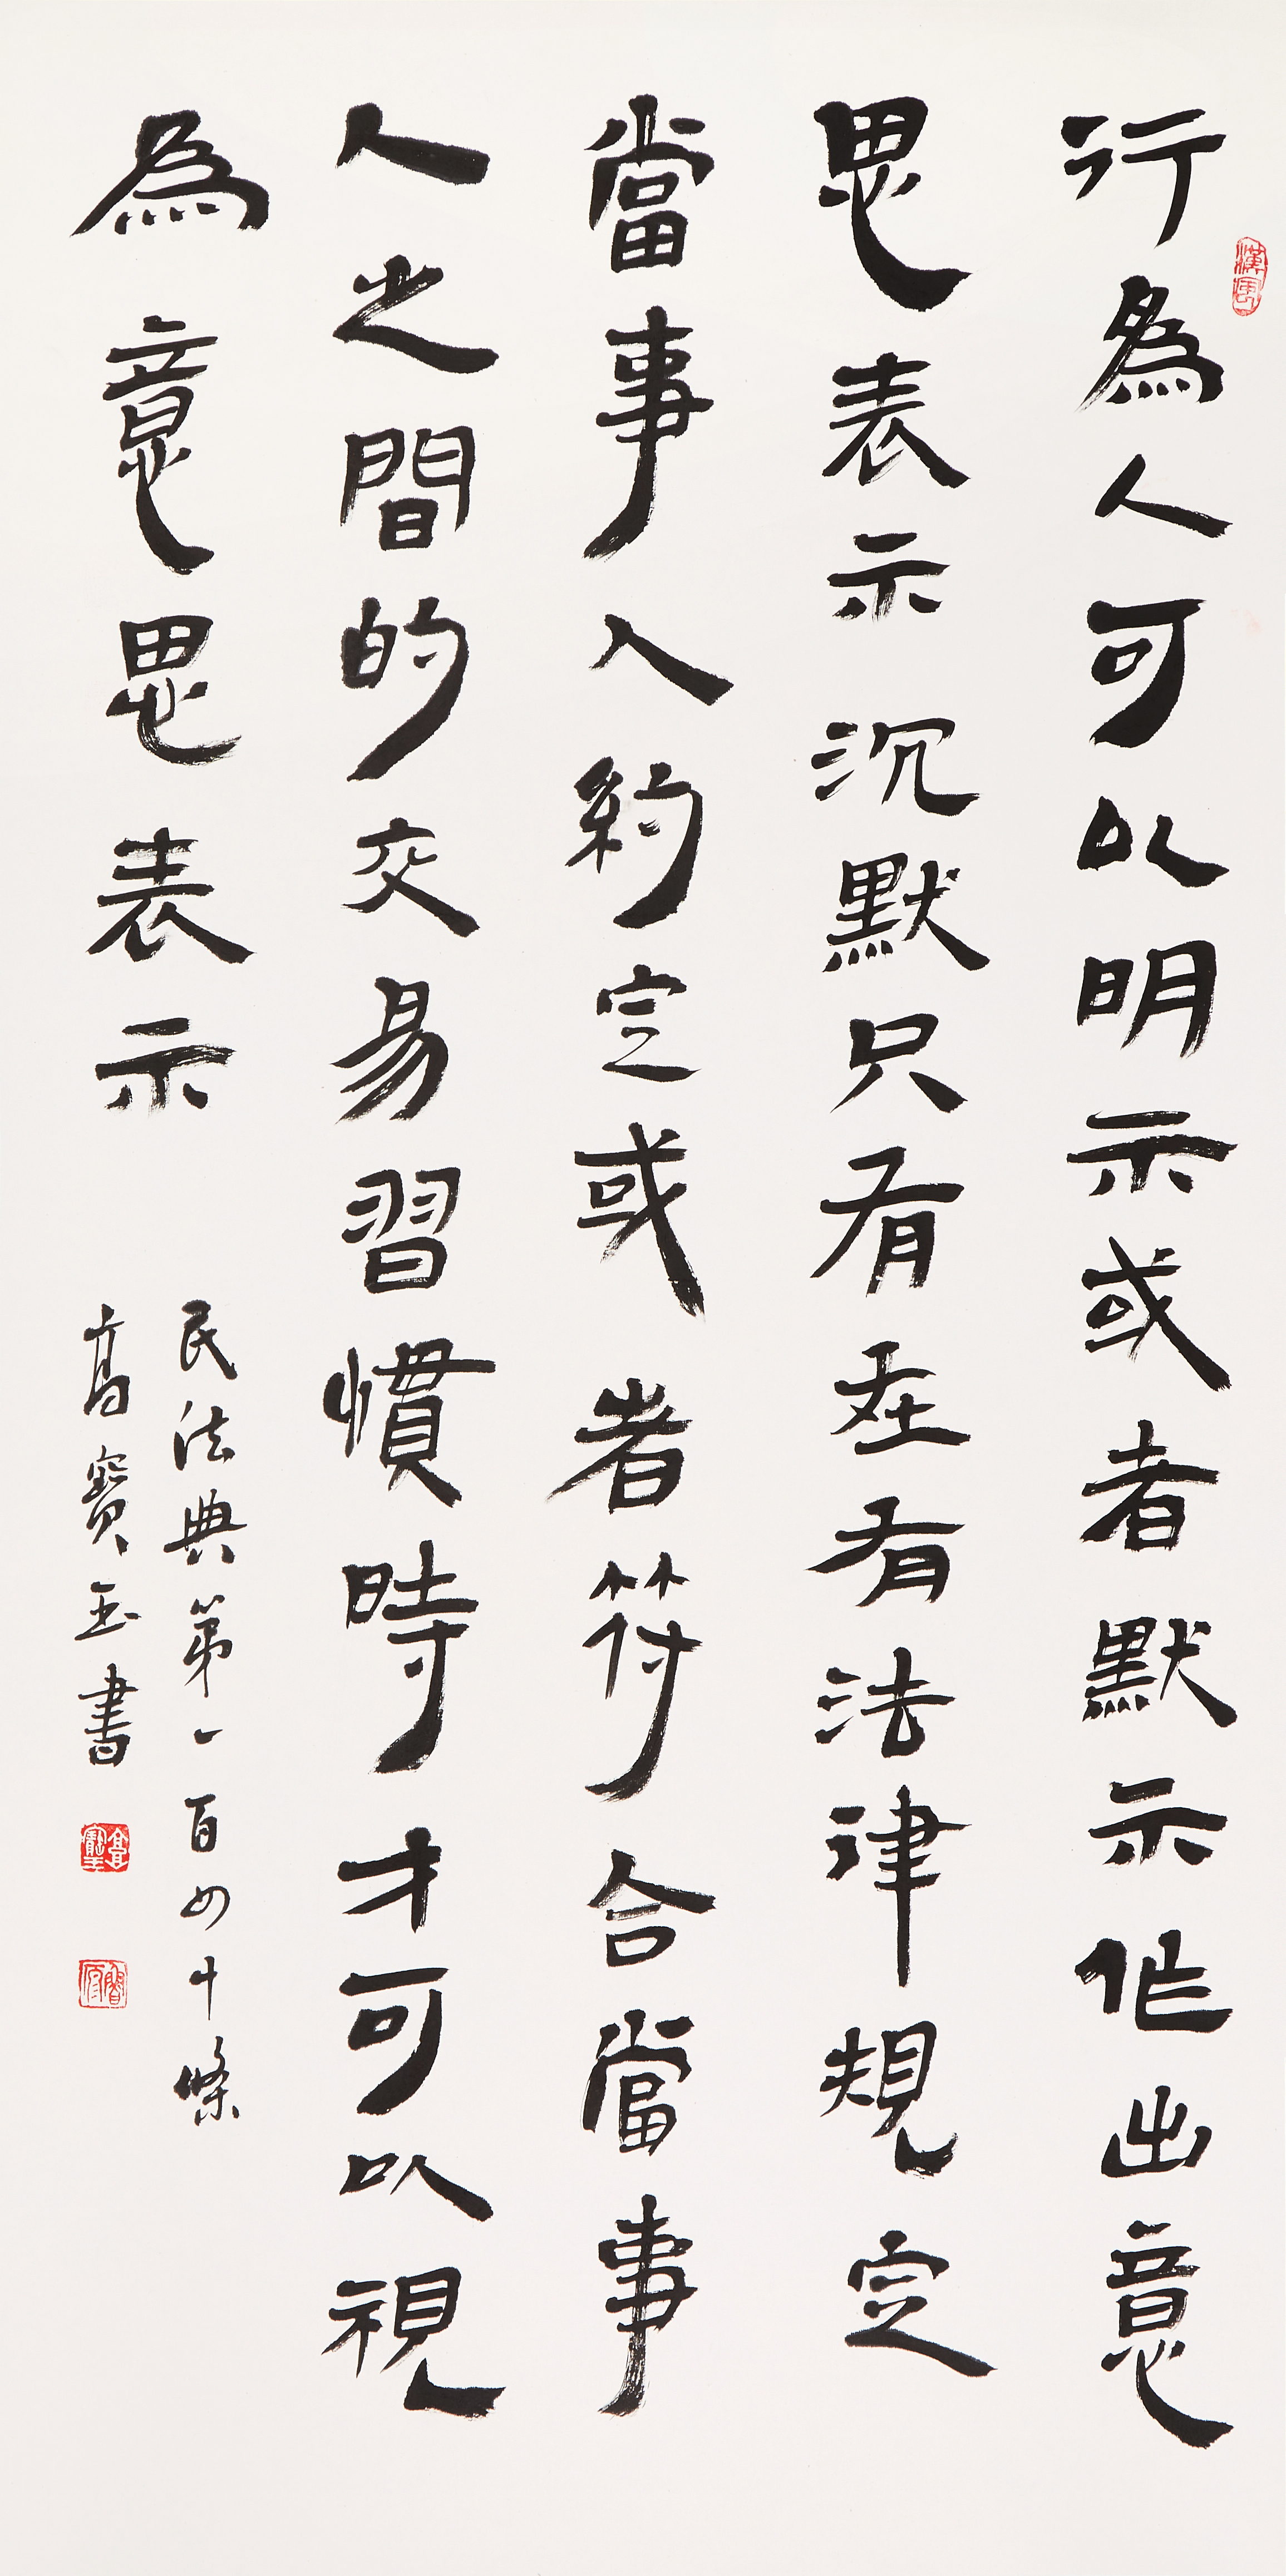 行為人可以明示或者默示作出意
思表示沉默只有在有法律規定
當事人約定或者符合當事
人之間的交易習慣時才可以視
為意思表示
民法典第一百四十條
高寶玉書
漢風